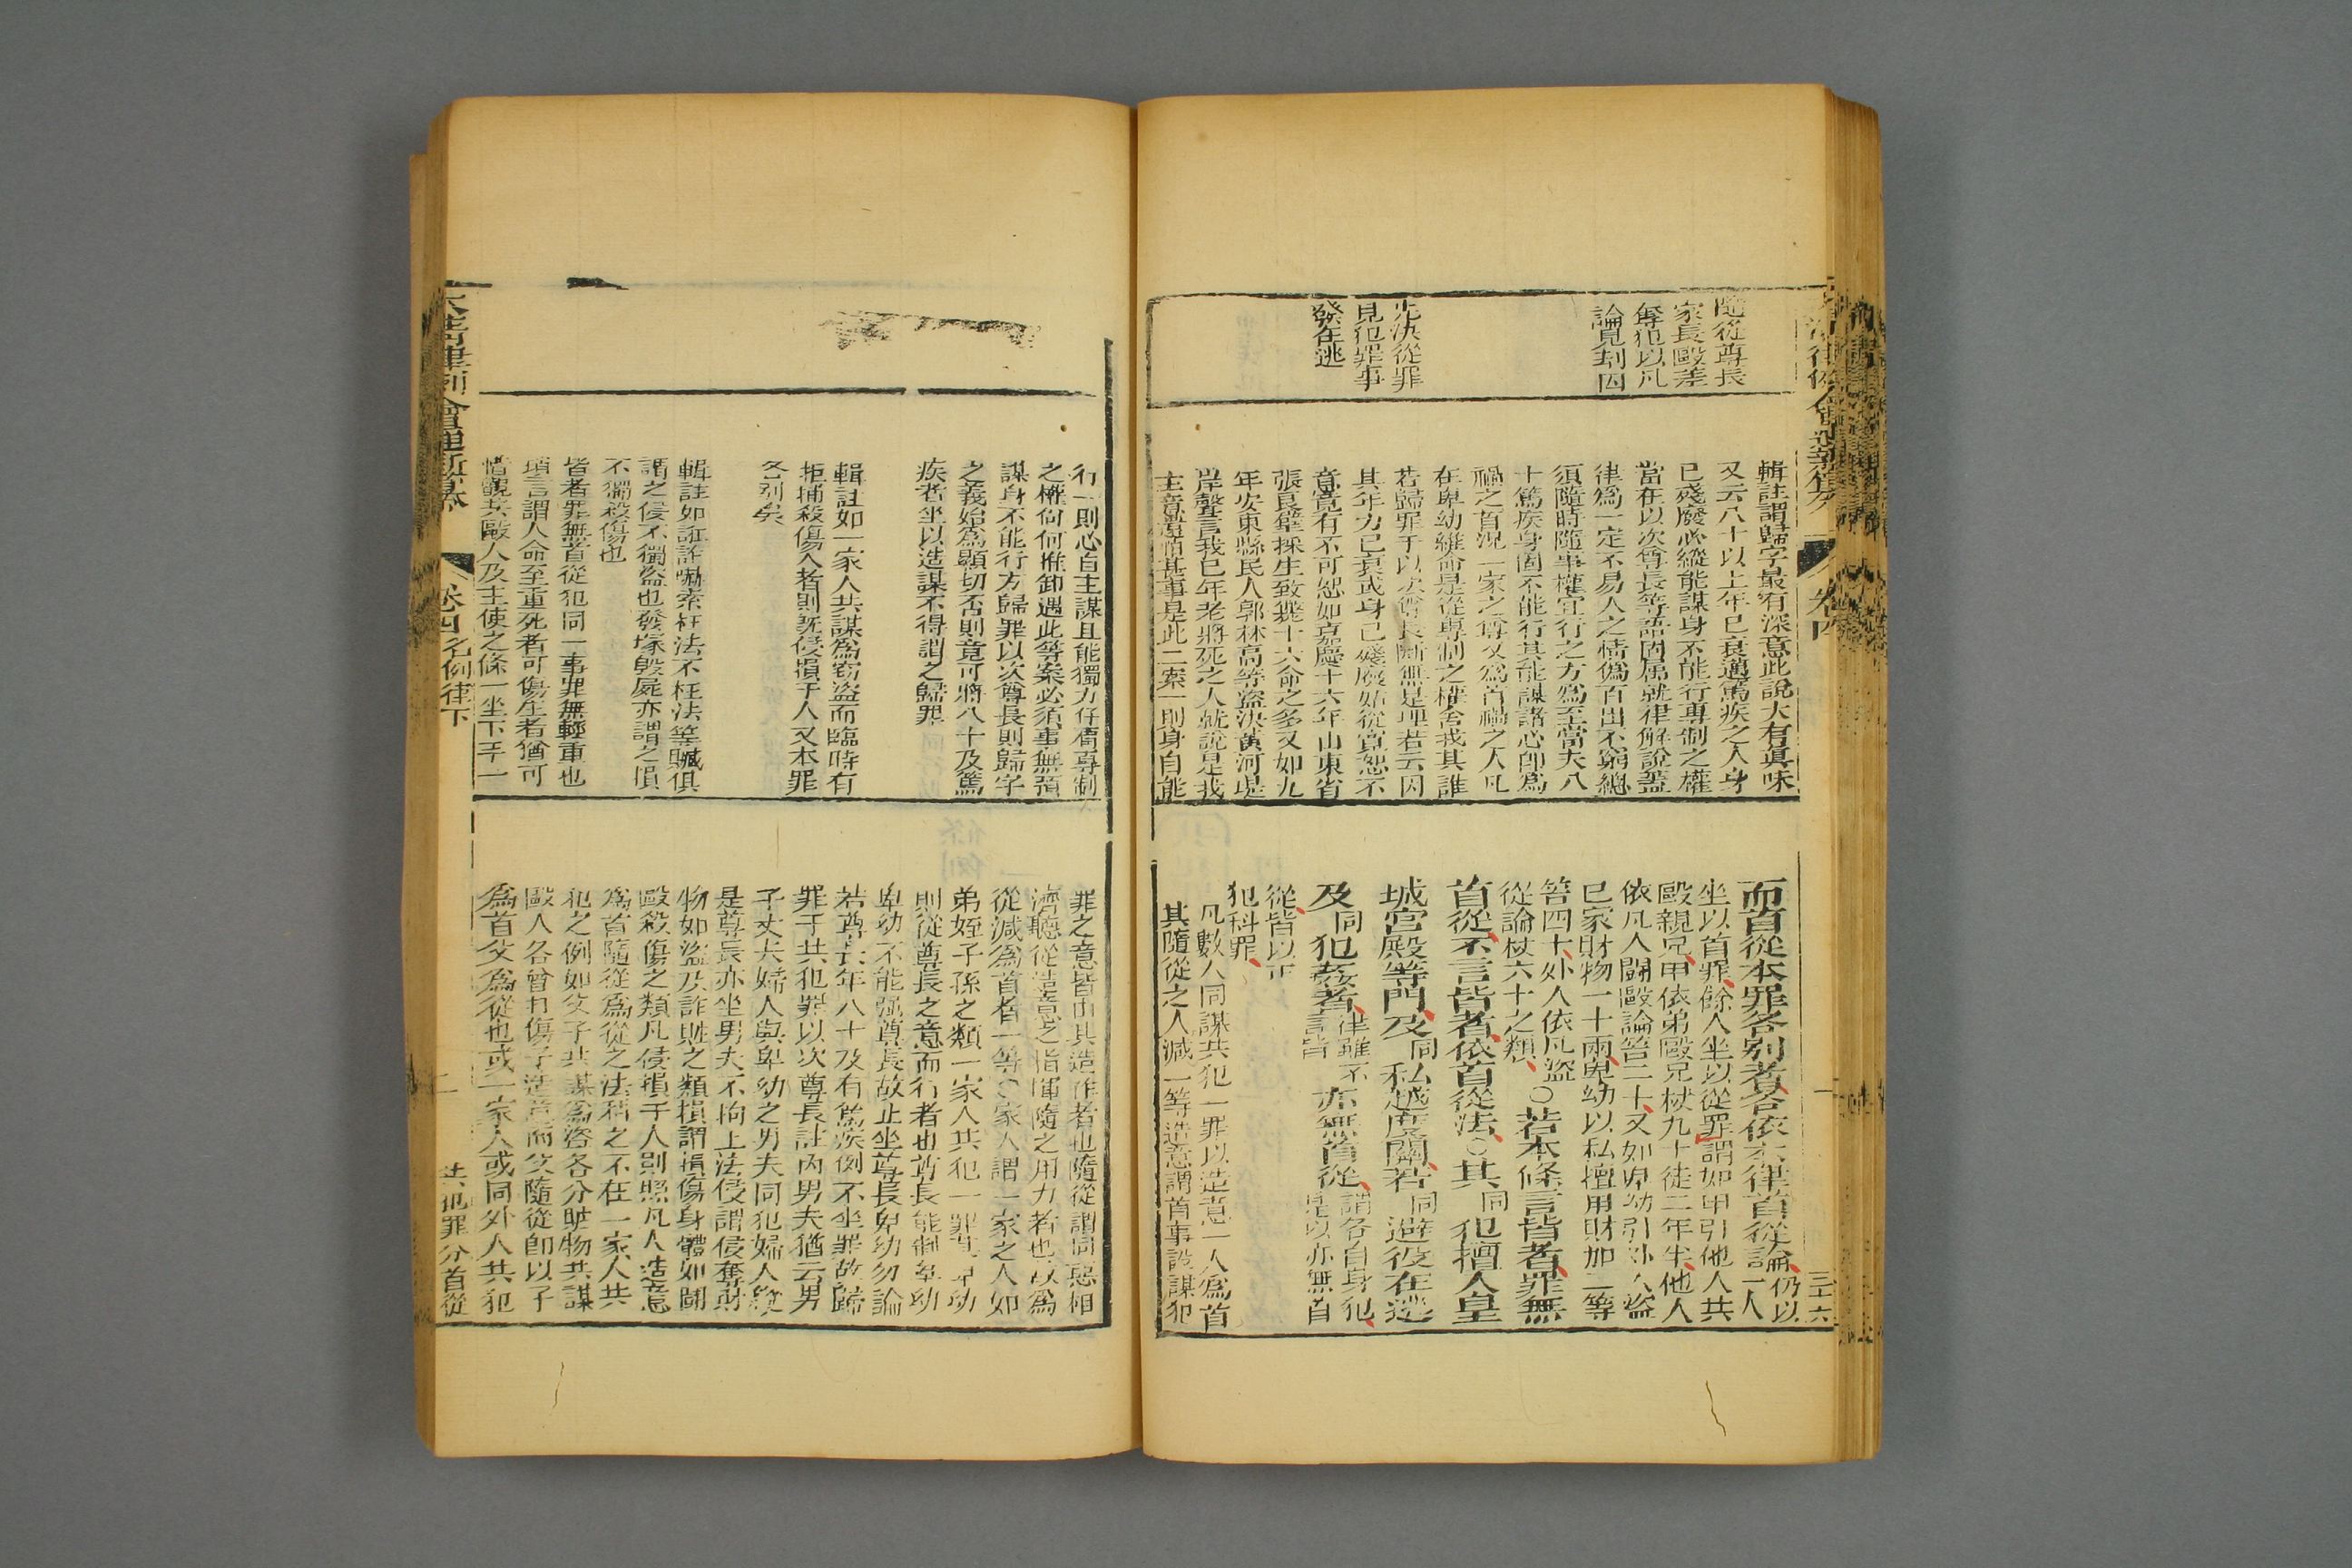 隨從尊長
家長毆差
奪犯以凡
論見刦囚
先決從罪
見犯罪事
發在逃
輯註謂歸字最有深意此說大有眞味
又云八十以上年已衰邁篤疾之人身
已殘廢必縱能謀身不能行專制之權
當在以次尊長等語固屬就律解說葢
律爲一定不易人之情僞百出不窮總
須隨時隨事權宜行之方爲至當夫八
十篤疾身固不能行其能謀諸心卽爲
禍之首況一家之尊又爲首禍之人凡
在卑幼維命是從專制之權舍我其誰
若歸罪于以次尊長斷無是理若云因
其年力已衰或身已殘廢姑從寬恕不
意竟有不可恕如嘉慶十六年山東省
張良璧採生致斃十六命之多又如九
年安東縣民人郭林高等盜決黃河堤
岸聲言我已年老將死之人就說是我
主意
而首從本罪各別者各依本律首從論仍以一人
坐以首罪餘人坐以從罪謂如甲引他人共
毆親兄甲依弟毆兄杖九十徒二年半他人
依凡人鬭毆論笞二十又如卑幼引外人盜
已家財物一十兩卑幼以私擅用財加二等
笞四十外人依凡盜從論杖六十之類○若本條言皆者罪無
首從不言皆者依首從法○其同犯擅入皇
城宮殿等門及同私越度關若同避役在逃
及同犯姦者律雖不言皆亦無首從謂各自身犯是以亦無首
從皆以正
犯科罪
凡數人同謀共犯一罪以造意一人爲首
其隨從之人減一等造意謂首事設謀犯
行一則心自主謀且能獨力仔肩專制
之權何何推卸遇此等案必須事無預
謀身不能行方歸罪以次尊長則歸字
之義始爲顯切否則竟可將八十及篤
疾者坐以造謀不得謂之歸罪
輯註如一家人共謀爲竊盜而臨時有
拒捕殺傷人者則旣侵損于人又本罪
各別矣
輯註如誆詐嚇索枉法不枉法等贓俱
謂之侵不獨盜也發塚毀屍亦謂之損
不獨殺傷也
皆者罪無首從犯同一事罪無輕重也
瑣言謂人命至重死者可傷生者猶可
惜觀共毆人及主使之條一坐下手一
罪之意皆由其造作者也隨從謂同惡相
濟聽從造意之指揮隨之用力者也故爲
從減爲首者一等○家人謂一家之人如
弟姪子孫之類一家人共犯一罪其卑幼
則從尊長之意而行者也尊長能制卑幼
卑幼不能强尊長故止坐尊長卑幼勿論
若尊長年八十及有篤疾例不坐罪故歸
罪于共犯罪以次尊長註內男夫猶云男
子丈夫婦人與卑幼之男夫同犯婦人縱
是尊長亦坐男夫不拘上法侵謂侵奪財
物如盜及詐贓之類損謂損傷身體如鬭
毆殺傷之類凡侵損于人則照凡人造意
爲首隨從爲從之法科之不在一家人共
犯之例如父子共謀爲盜各分贓物共謀
毆人各曾刃傷子造意而父隨從卽以子
爲首父爲從也或一家人或同外人共犯
大清律例會通新纂
卷四名例律下
二
共犯罪分首從